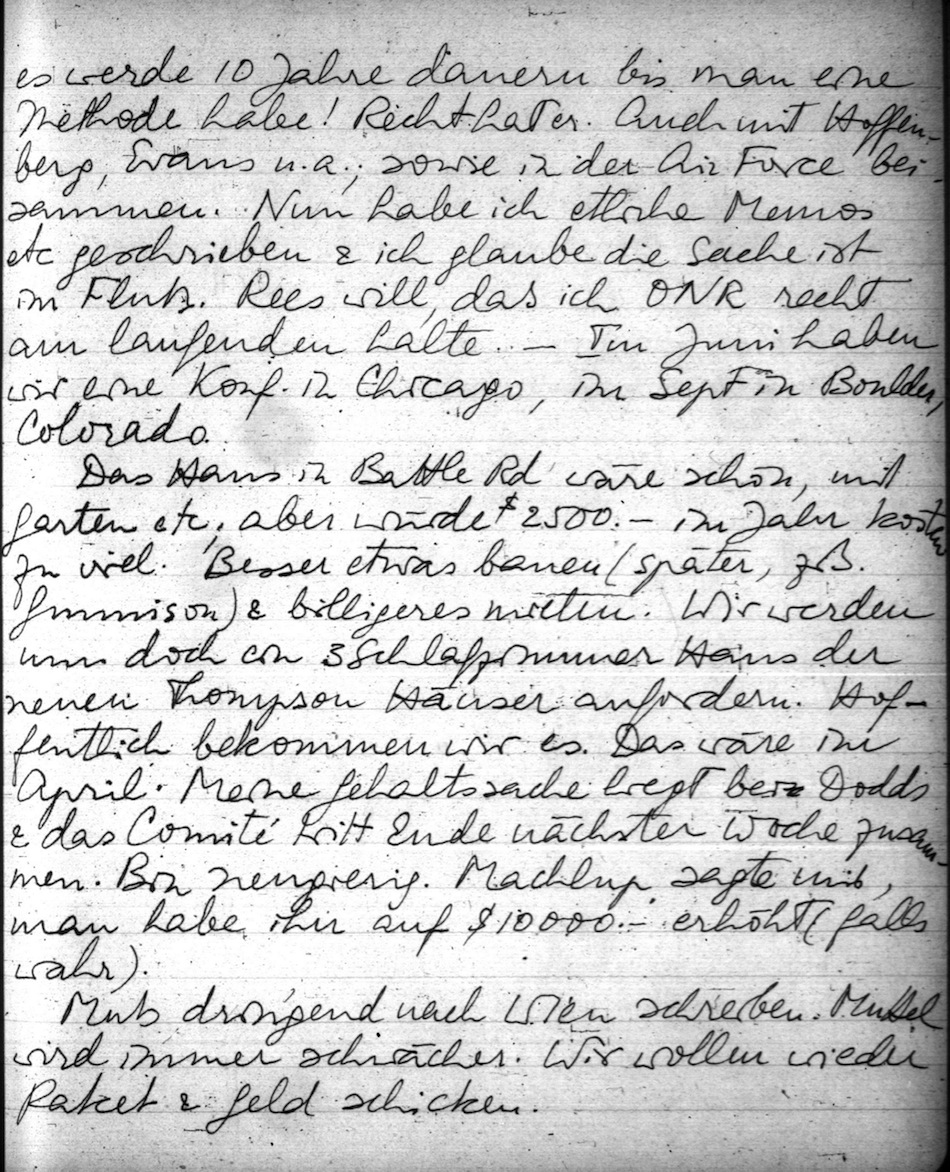 es werde 10 Jahre dauern bis man eine
Methode habe! Recht hat er. Auch mit Hoffen-
berg, Evans u.a.; sowie in der Air Force bei-
sammen. Nun habe ich etliche Memos
etc geschrieben & ich glaube die Sache ist
im Fluß. Rees will, das ich ONR recht
am laufenden halte. — Im Juni haben
wir eine Konf. in Chicago, im Sept in Boulder,
Colorado.
Das Haus in Battle Rd wäre schön, mit
Garten etc, aber würde $2500.- im Jahr kosten
zu viel. Besser etwas bauen (später, z.B.
Gunnison) & billigeres mieten. Wir werden
uns doch ein 3 Schlafzimmer Haus der
neuen Thompson Häuser anfordern. Hof-
fentlich bekommen wir es. Das wäre im
April. Meine Gehaltssache liegt bei Dodds
& das Comité tritt Ende nächster Woche zusam
men. Bin neugierig. Machlup sagte mir,
man habe ihn auf $10000.- erhöht (falls
wahr).
Muß dringend nach Wien schreiben. Muttel
wird immer schwächer. Wir wollen wieder
Paket & Geld schicken.